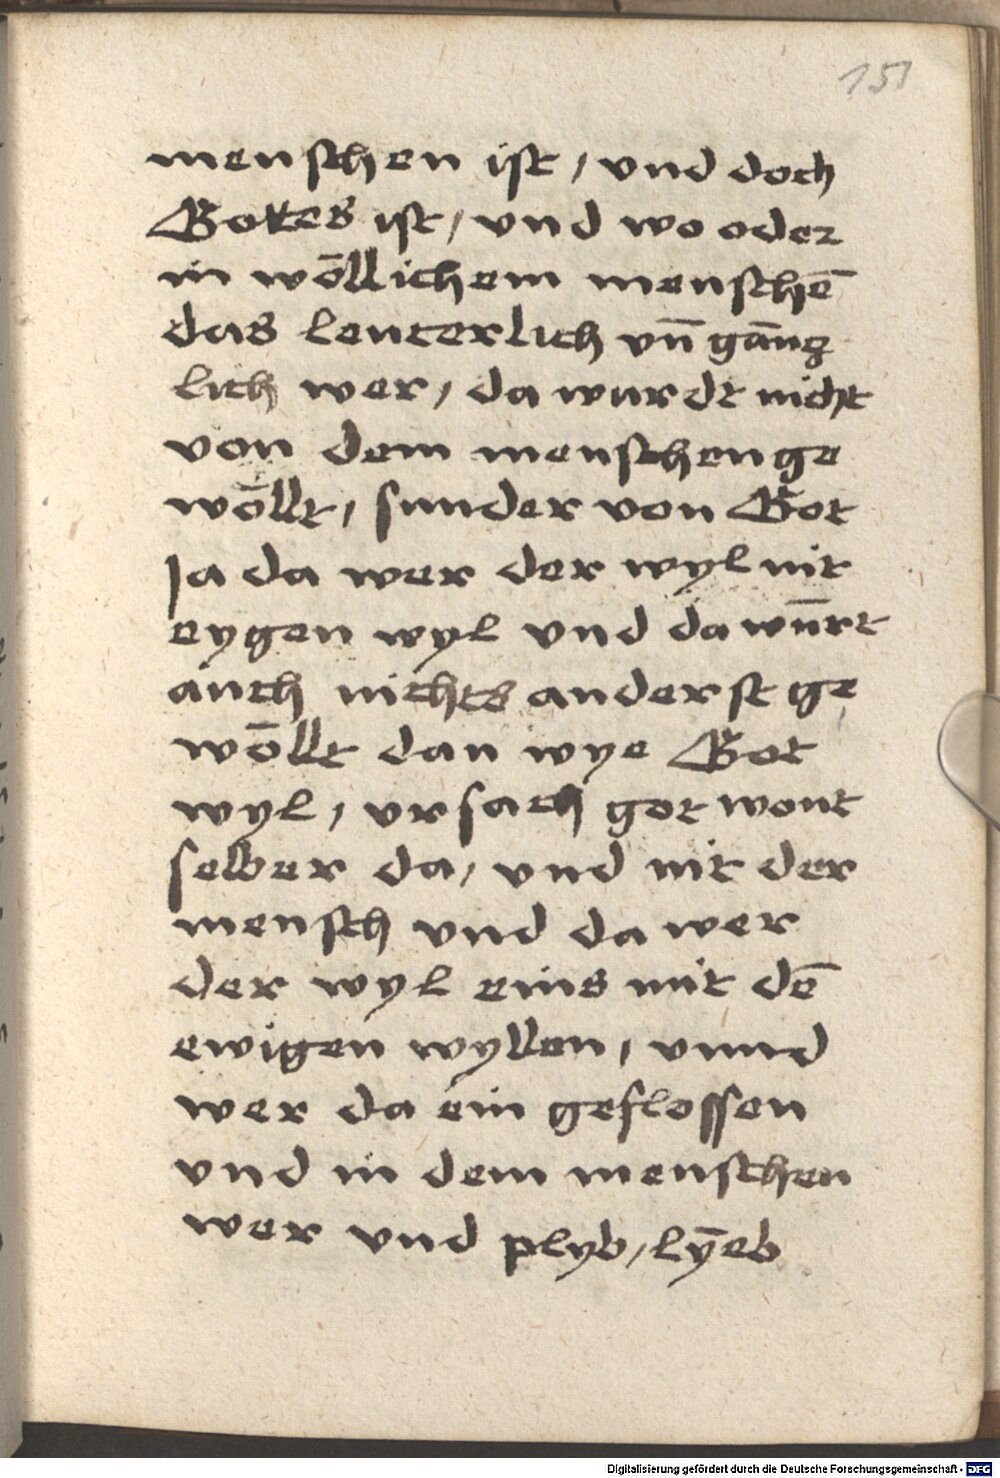 151
menschen ist, vnd doch
Gottes ist, vnd wo oder
in wōllichem menschē
das leuterlich vn̄ gāncz
lich wer, da wurdt nicht
von dem menschen ge
wōllt, sunder von Got
Ja da wer der wyl nit
eygen wyl vnd da wūrt
auch nichts anderst ge
wōllt dan wye Got
wyl, vrsach got wont
selber da, vnd nit der
mensch vnd da wer
der wyl eins mit dē
ewigen wyllen, vnnd
wer da ein geflossen
vnd in dem menschen
wer vnd plyb, lȳeb
Digitalisierung gefördert durch die Deutsche Forschungsgemeinschaft - DFG